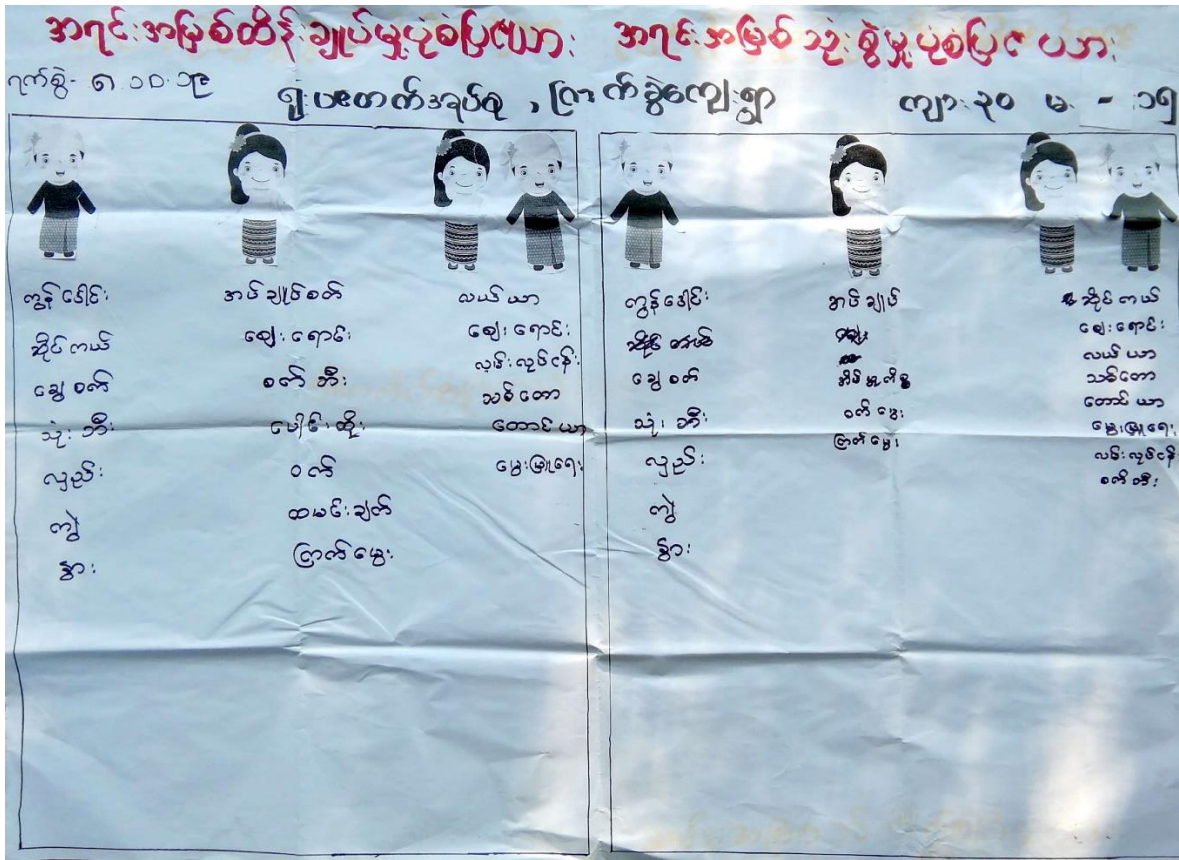 အရင်းအမြစ်ထိန်းချုပ်မှုပုံစံပြဇယား
အရင်းအမြစ် သုံးစွဲမှုပုံစံပြဇယား
ရက်စွဲ- ၆.၁၀.၁၉
ကျေးရွာ
ကျား ၃၀ မ - ၁၅
ကွန်ဒေါင်း
ဆိုင်ကယ်
ချွေစက်
သုံးဘီး
လှည်း
ကျွဲ
နွား
အပ်ချုပ်စက်
ဈေးရောင်း
စက်ဘီး
ပေါင်းအိုး
ဝက်
ထမင်းချက်
ကြက်မွေး
လယ်ယာ
ဈေးရောင်း
လမ်းလုပ်ငန်း
သစ်တော
တောင်ယာ
မွေးမြူရေး
ကွန်ဒေါင်း
ချွေစက်
သုံးဘီး
လှည်း
ကျွဲ
နွား
အပ်ချုပ်
အိမ်မှုကိစ္စ
ဝက်မွေး
ကြက်မွေး
ဆိုင်ကယ်
ဈေးရောင်း
လယ်ယာ
သစ်တော
တောင်ယာ
မွေးမြူရေး
လမ်းလုပ်ငန်း
စက်ဘီး